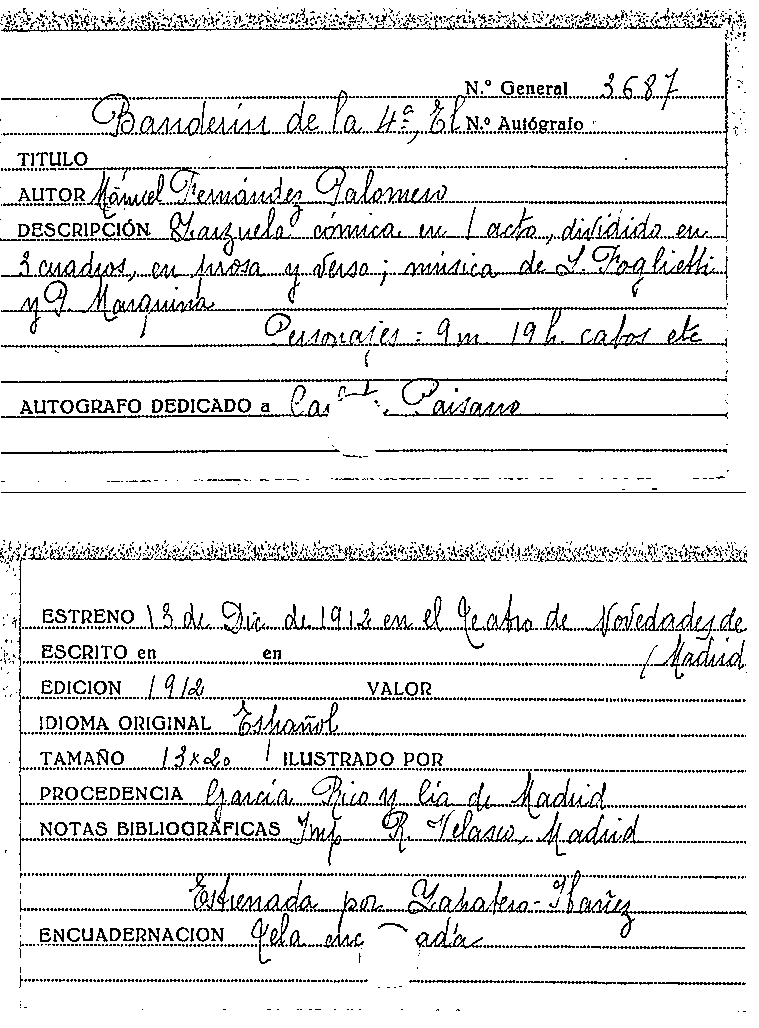 N.º General 3687
Banderín de la 4ª, El N.º Autógrafo
TITULO
AUTOR Manuel Fernández Palomero
DESCRIPCIÓN Zarzuela cómica en 1 acto, dividido en
3 cuadros, en prosa y verso; música de L. Foglietti
y P. Marquina
Personajes = 9 m. 19 h. cabos etc
AUTOGRAFO DEDICADO a Paisano
ESTRENO 13 de Dic de 1912 en el Teatro de Novedades de
ESCRITO en en (Madrid
EDICION 1912 VALOR
IDIOMA ORIGINAL Español
TAMAÑO 13x20 ILUSTRADO POR
PROCEDENCIA García Rico y Cía de Madrid
NOTAS BIBLIOGRÁFICAS Imp R. Velasco, Madrid
Estrenada por Zapatero-Ibañez
ENCUADERNACION Tela